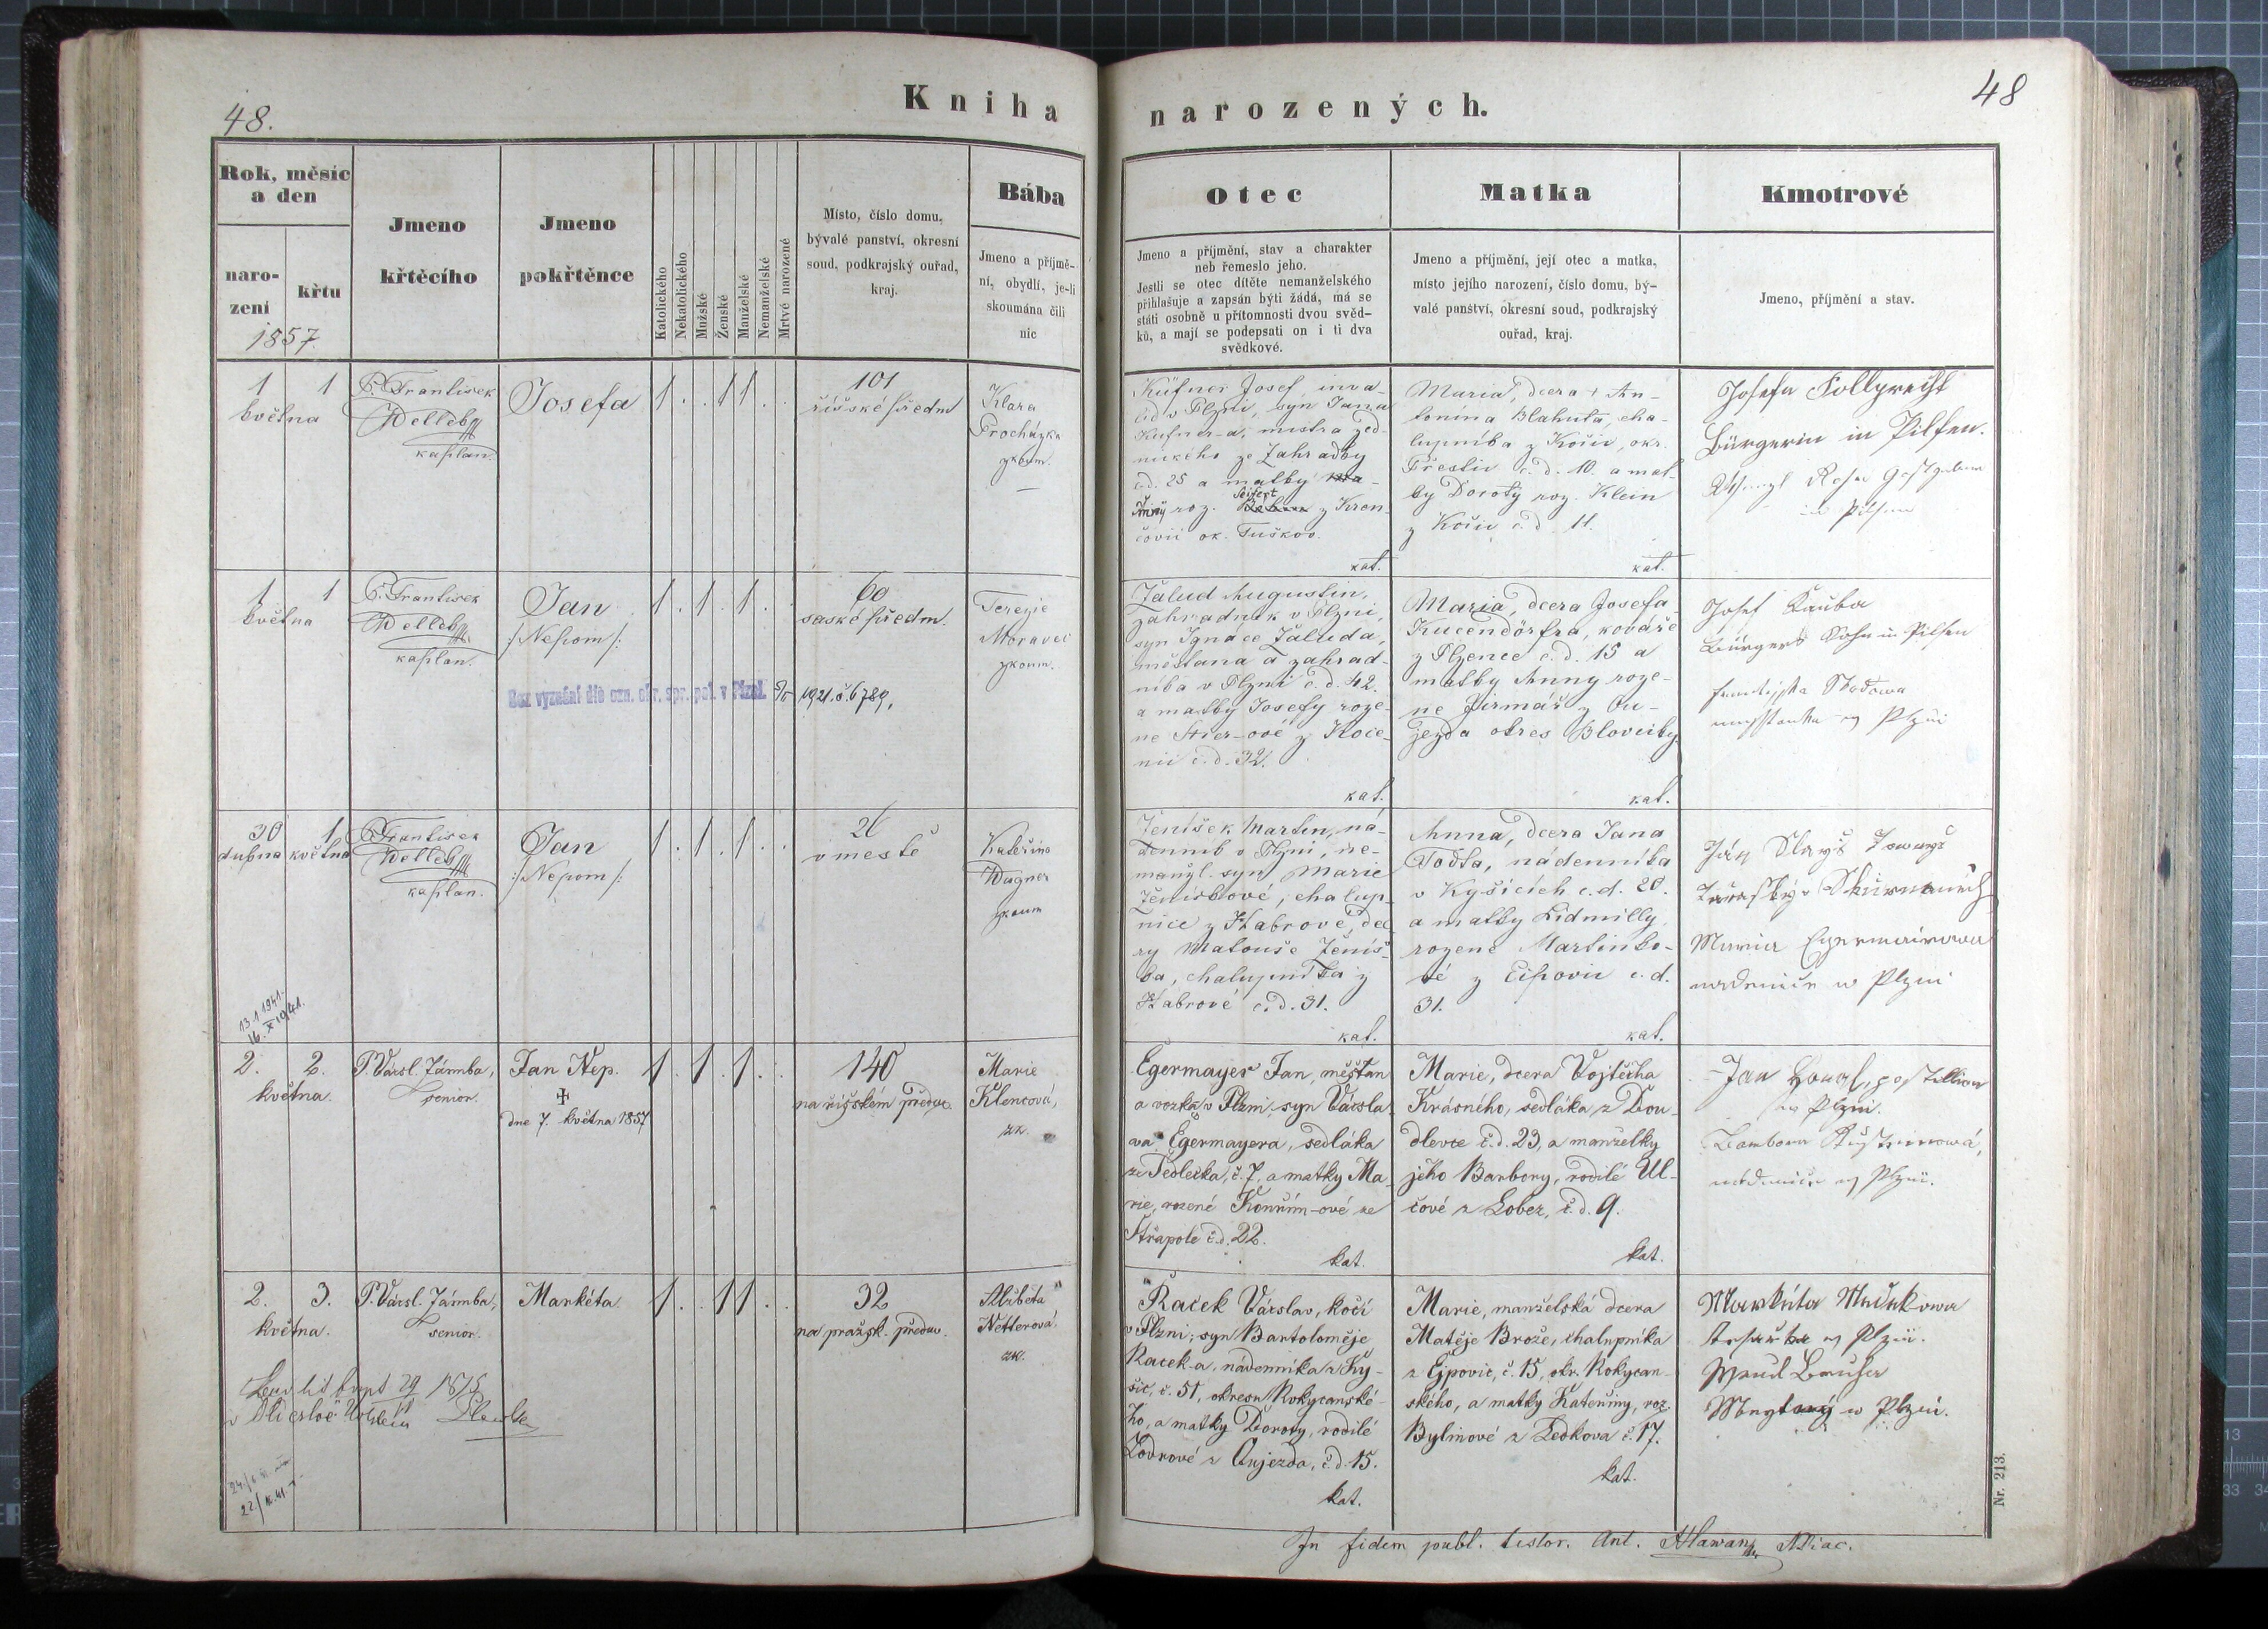 48.
Kniha
narozených.
48
Rok, měsíc
a den
naro-
zení
křtu
1857.
Jmeno
křtěcího
Jmeno
pokřtěnce
Katolického
Nekatolického
Mužské
Ženské
Manželské
Nemanželské
Mrtvě narozené
Místo, číslo domu,
bývalé panství, okresní
soud, podkrajský ouřad,
kraj.
Bába
Jmeno a příjmě-
ní, obydlí, je-li
skoumána čili
nic
Otec
Jmeno a příjmění, stav a charakter
neb řemeslo jeho.
Jestli se otec dítěte nemanželského
přihlašuje a zapsán býti žádá, má se
státi osobně u přítomnosti dvou svěd-
ků, a mají se podepsati on i ti dva
svědkové.
Matka
Jmeno a příjmění, její otec a matka,
místo jejího narození, číslo domu, bý-
valé panství, okresní soud, podkrajský
ouřad, kraj.
Kmotrové
Jmeno, příjmění a stav.
1 1
května
P. František
Welleb
kaplan.
Josefa
1 . . 1 1 . .
101
říšské předm
Klara
Procházka
zkoum.
Küfner Josef inva-
lid v Plzni, syn Jana
Kufner-a, mistra zed-
nického ze Zahradky
č.d. 25 a matky
roz. Seifert z Kren-
čovic ok. Tuškov.
kat.
Maria, dcera + An-
tonína Blahuta, cha-
lupníka z Košic, okr.
Přestic č.d. 10. a mat-
ky Doroty roz. Klein
z Košic č.d. 11.
kat.
Josefa Follprecht
Bürgerin in Pilsen.
in Pilsen
1 1
května
P. František
Welleb
kaplan.
Jan
/:Nepom/:
1 . 1 . 1 . .
60
saské předm.
Terezie
Moravec
zkoum.
Bez vyznání dle ozn. okr. spr. pol. v Plzni
1921. č. 6789.
Žalud Augustin,
zahradník v Plzni,
syn Ignáce Žaluda,
měštana a zahrad-
níka v Plzni č.d. 42.
a matky Josefy roze-
né Stier-ové z Koce-
nic č.d. 32.
kat.
Maria, dcera Josefa
Kucendörfra, kováře
z Plzence č.d. 15 a
matky Anny roze-
ne Jirmář z Ou-
jezda okres Blovický
kat.
Josef Kauba
Bürgers Sohn in Pilsen
30 1
dubna května
P. František
Welleb
kaplan.
Jan
/:Nepom/:
1 . 1 . 1 . .
26
v meste
Kateřina
Wagner
zkoum
13.1.1941.
16. X 1941.
Ženíšek Martin, ná-
denník v Plzni, ne-
manžl. syn Marie
Ženíškové, chalup-
nice z Habrové, dce
ry Matouše Ženíš-
ka, chalupníka z
Habrové č.d. 31.
kat.
Anna, dcera Jana
Tošta, nádenníka
v Kyšicích č.d. 20.
a matky Lidmilly,
rozené Martinko-
vé z Eipovic č.d.
31.
kat.
Maria Egermairowa
nadenice w Plzni
2. 2.
května.
P. Václ. Jármba,
senior.
Jan Nep.
✝
dne 7. května 1857
1 . 1 . 1 . .
140
na říšském předm.
Marie
Klencová,
zk.
Egermayer Jan, měštan
a vozka v Plzni, syn Václa-
va Egermayera, sedláka
ze Sedlecka, č. 7, a matky Ma-
rie, rozené Konřím-ové ze
Střapole č.d. 22.
kat.
Marie, dcera Vojtěcha
Krásného, sedláka z Dou-
dlevce č.d. 23, a manželky
jeho Barbory, rodilé Ul-
čové z Lobez, č.d. 9.
kat.
Jan postillion
w Plzni.
Barbora
nádenice w Plzni.
2. 3.
května.
P. Václ. Jármba,
senior.
Markéta.
1 . . 1 1 . .
32
na pražsk. předm.
Alžběta
Netterová.
zk.
22./ 10. 41.
Raček Václav, kočí
v Plzni; syn Bartoloměje
Racek-a, nádenníka z Ky-
šic, č. 51, okresu Rokycanské-
ho, a matky Doroty, rodilé
Lodrové z Oujezda, č.d. 15.
kat.
Marie, manželská dcera
Matěje Brože, chalupníka
z Ejpovic, č. 15, okr. Rokycan-
ského, a matky Kateřiny, roz.
Bylinové z Ledkova č. 17.
kat.
Markéta
w Plzni.
w Plzni.
In fidem publ. testor. Ant. Hlawan
Nr. 213.